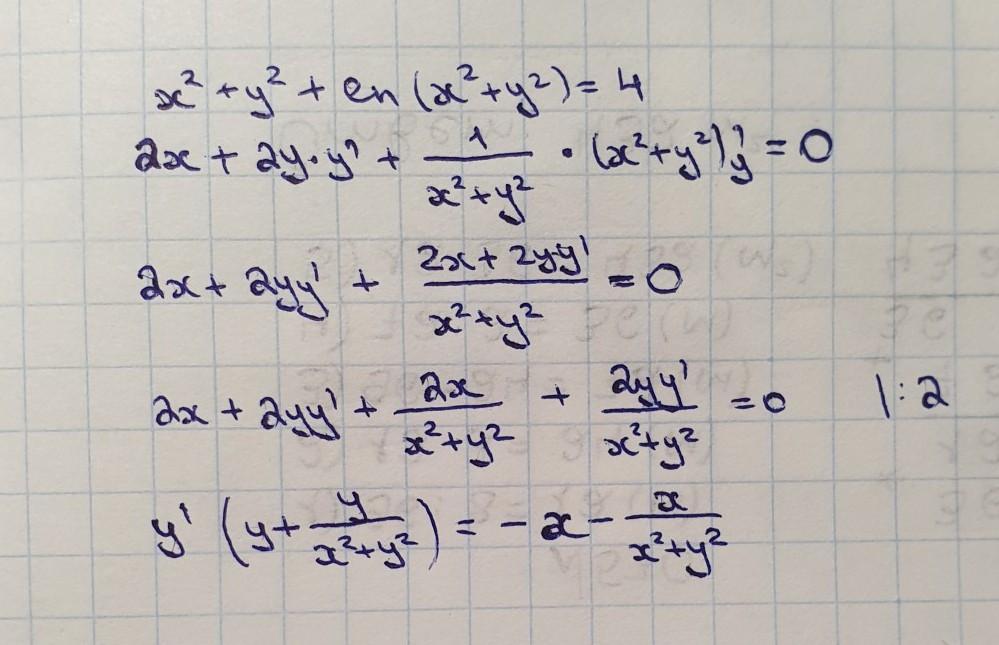 x² + y² + ln (x² + y²) = 4
2x + 2y · y' + 1/(x² + y²) · (x² + y²)'y = 0
2x + 2yy' + (2x + 2yy')/(x² + y²) = 0
2x + 2yy' + 2x/(x² + y²) + 2yy'/(x² + y²) = 0 |:2
y' (y + y/(x² + y²)) = - x - x/(x² + y²)